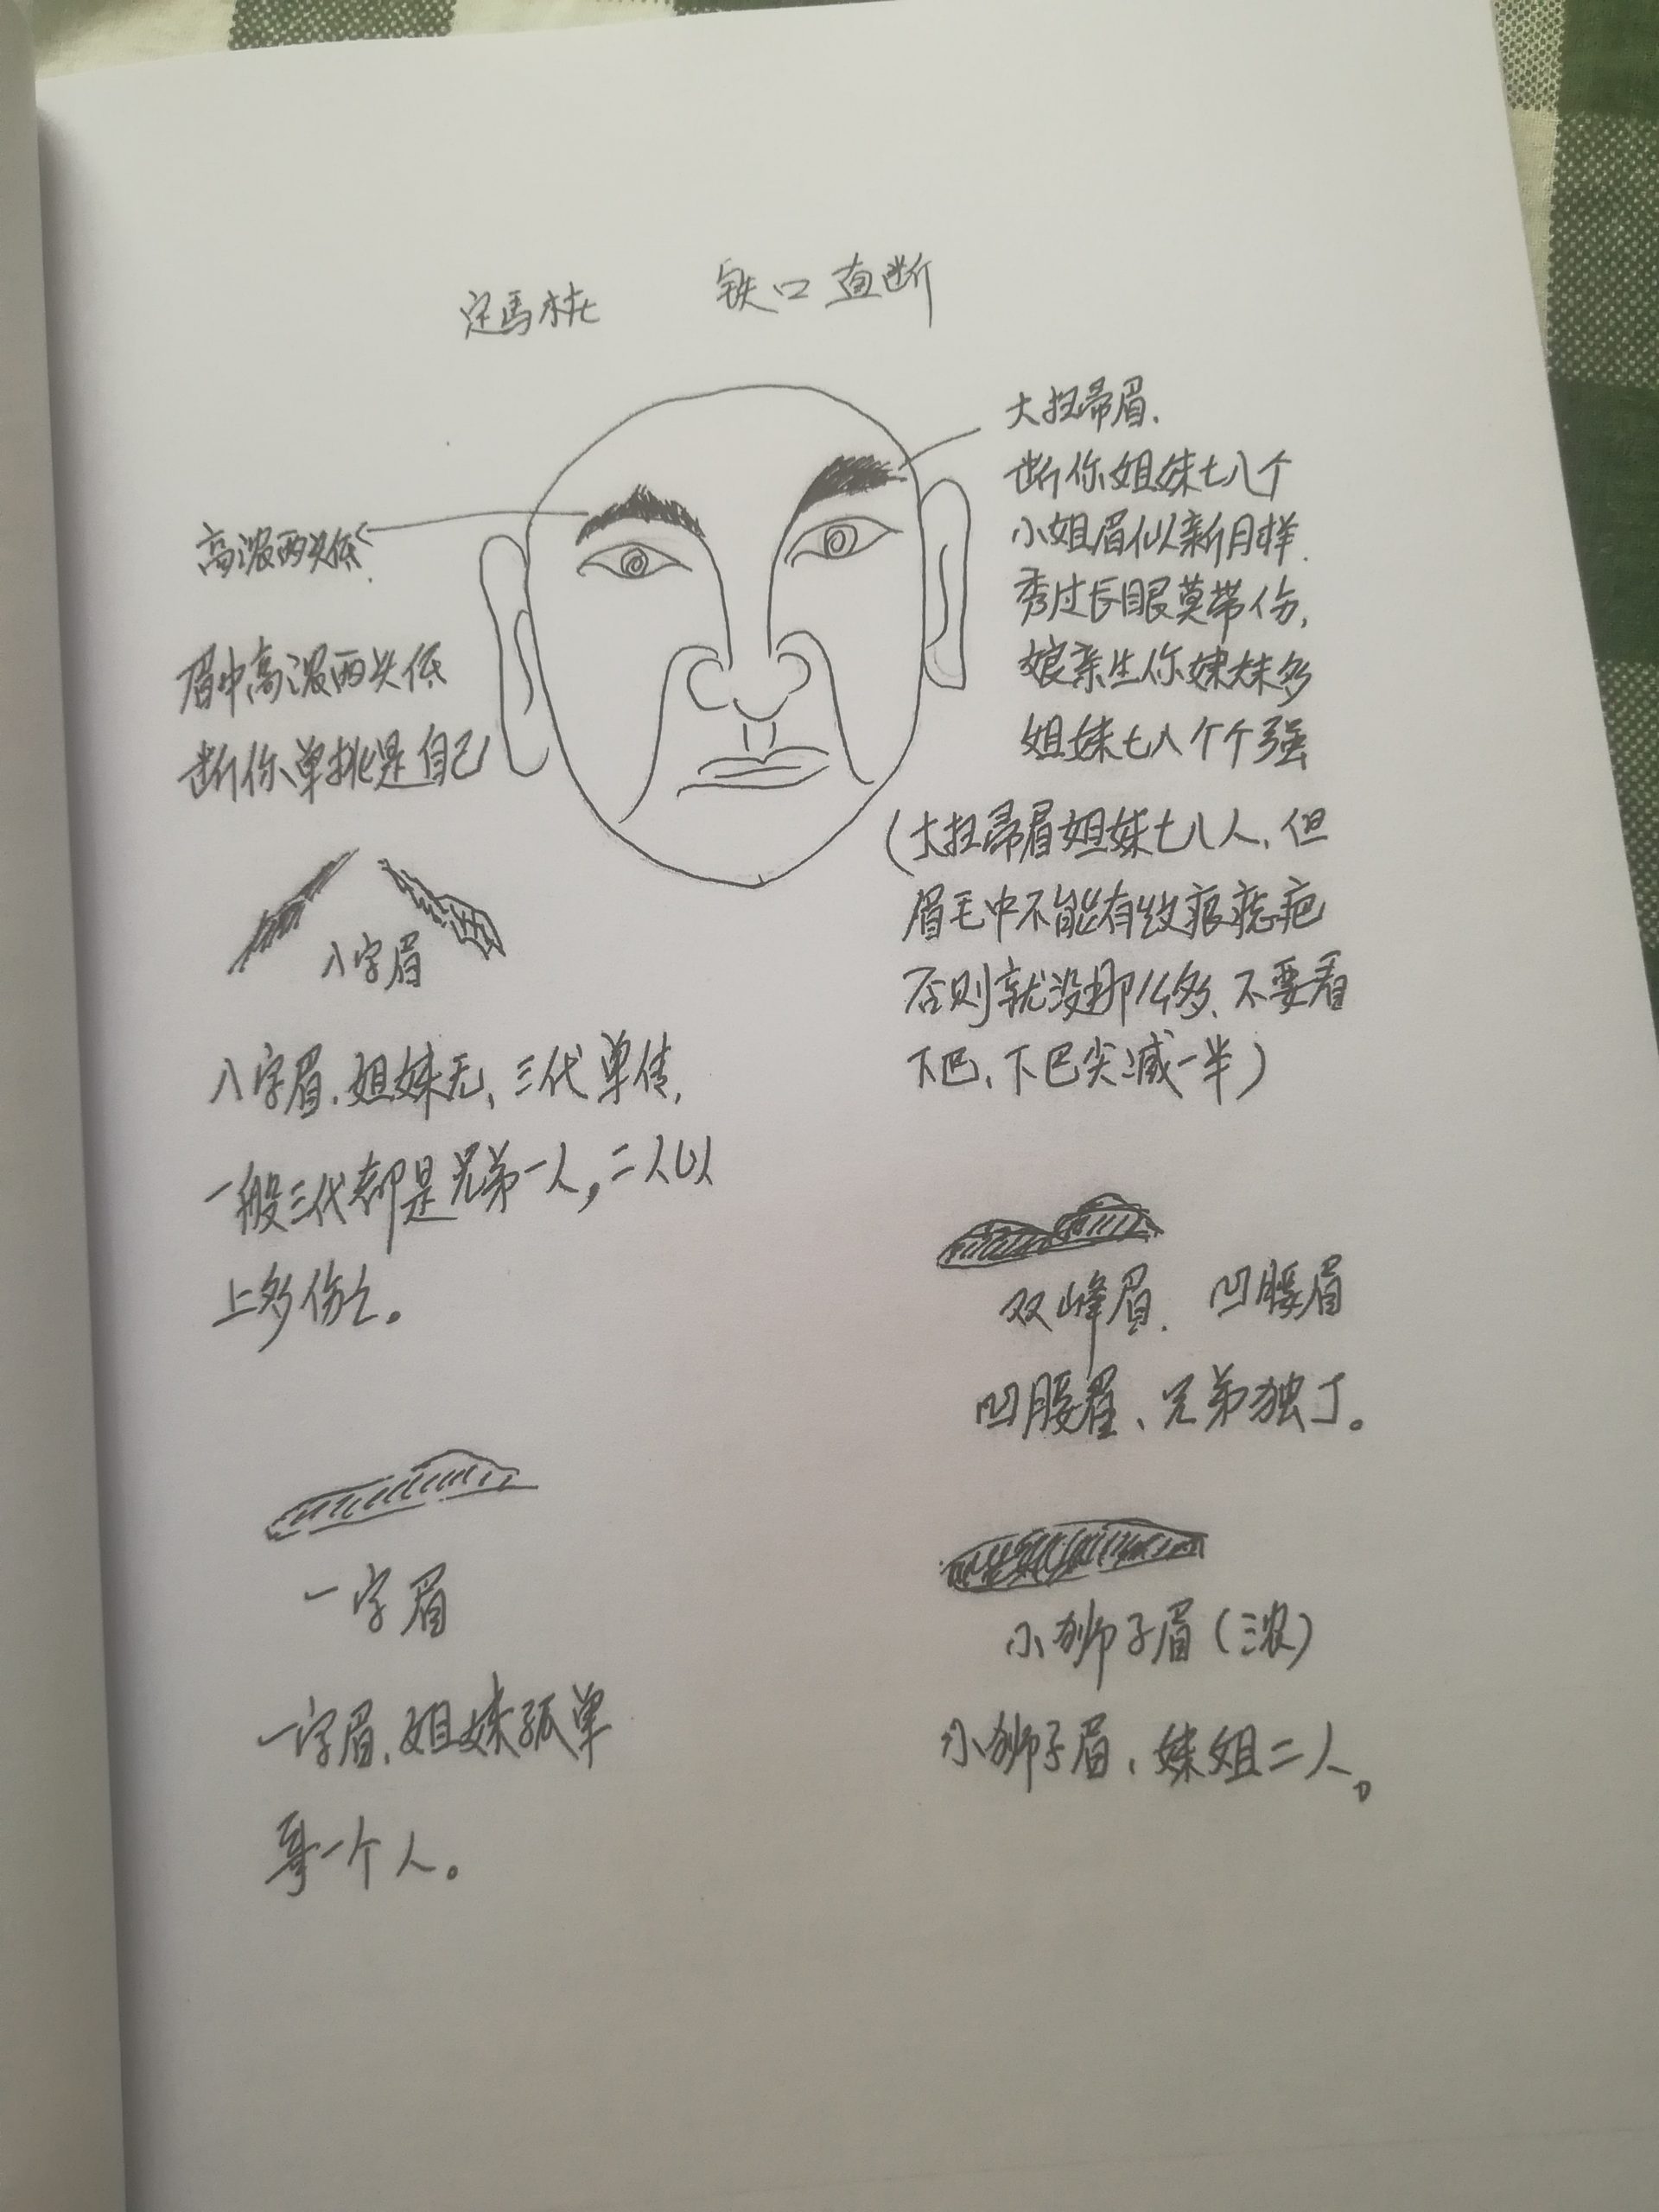 定馬桩 铁口直断
高浓两头低
眉中高浓两头低
断你单挑是自己
大扫帚眉.
断你姐妹七八个
小姐眉似新月样.
秀过长眼莫带伤,
娘亲生你姊妹多
姐妹七八个个强
(大扫帚眉姐妹七八人、但
眉毛中不能有纹痕痣疤
否则就没那么多、不要看
下巴、下巴尖减一半)
八字眉
八字眉.姐妹无、三代单传,
一般三代都是兄弟一人,二人以
上多伤亡。
双峰眉. 凹腰眉
凹腰眉、兄弟独丁。
一字眉
一字眉.姐妹孤单
哥一个人。
小狮子眉(浓)
小狮子眉、妹姐二人。